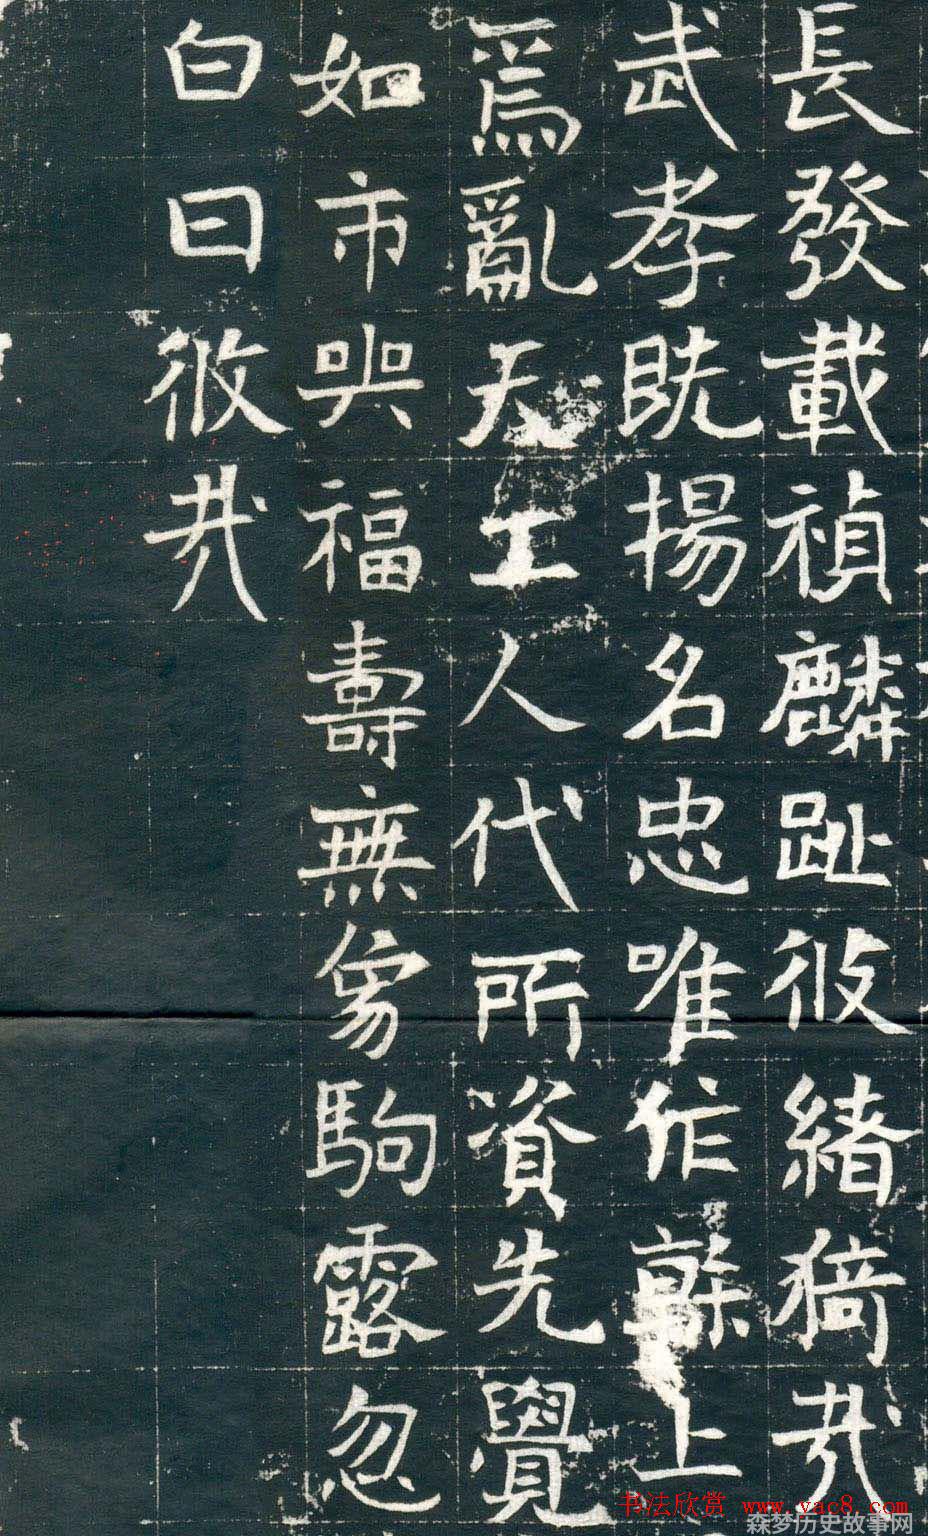 長發載禎麟趾緒猗哉
武孝旣揚名忠唯作榦上
爲亂天工人代所資先覺
如市與福壽無象駒露忽
白日攸哉
书法欣赏 www.yac8.com
森梦历史故事网